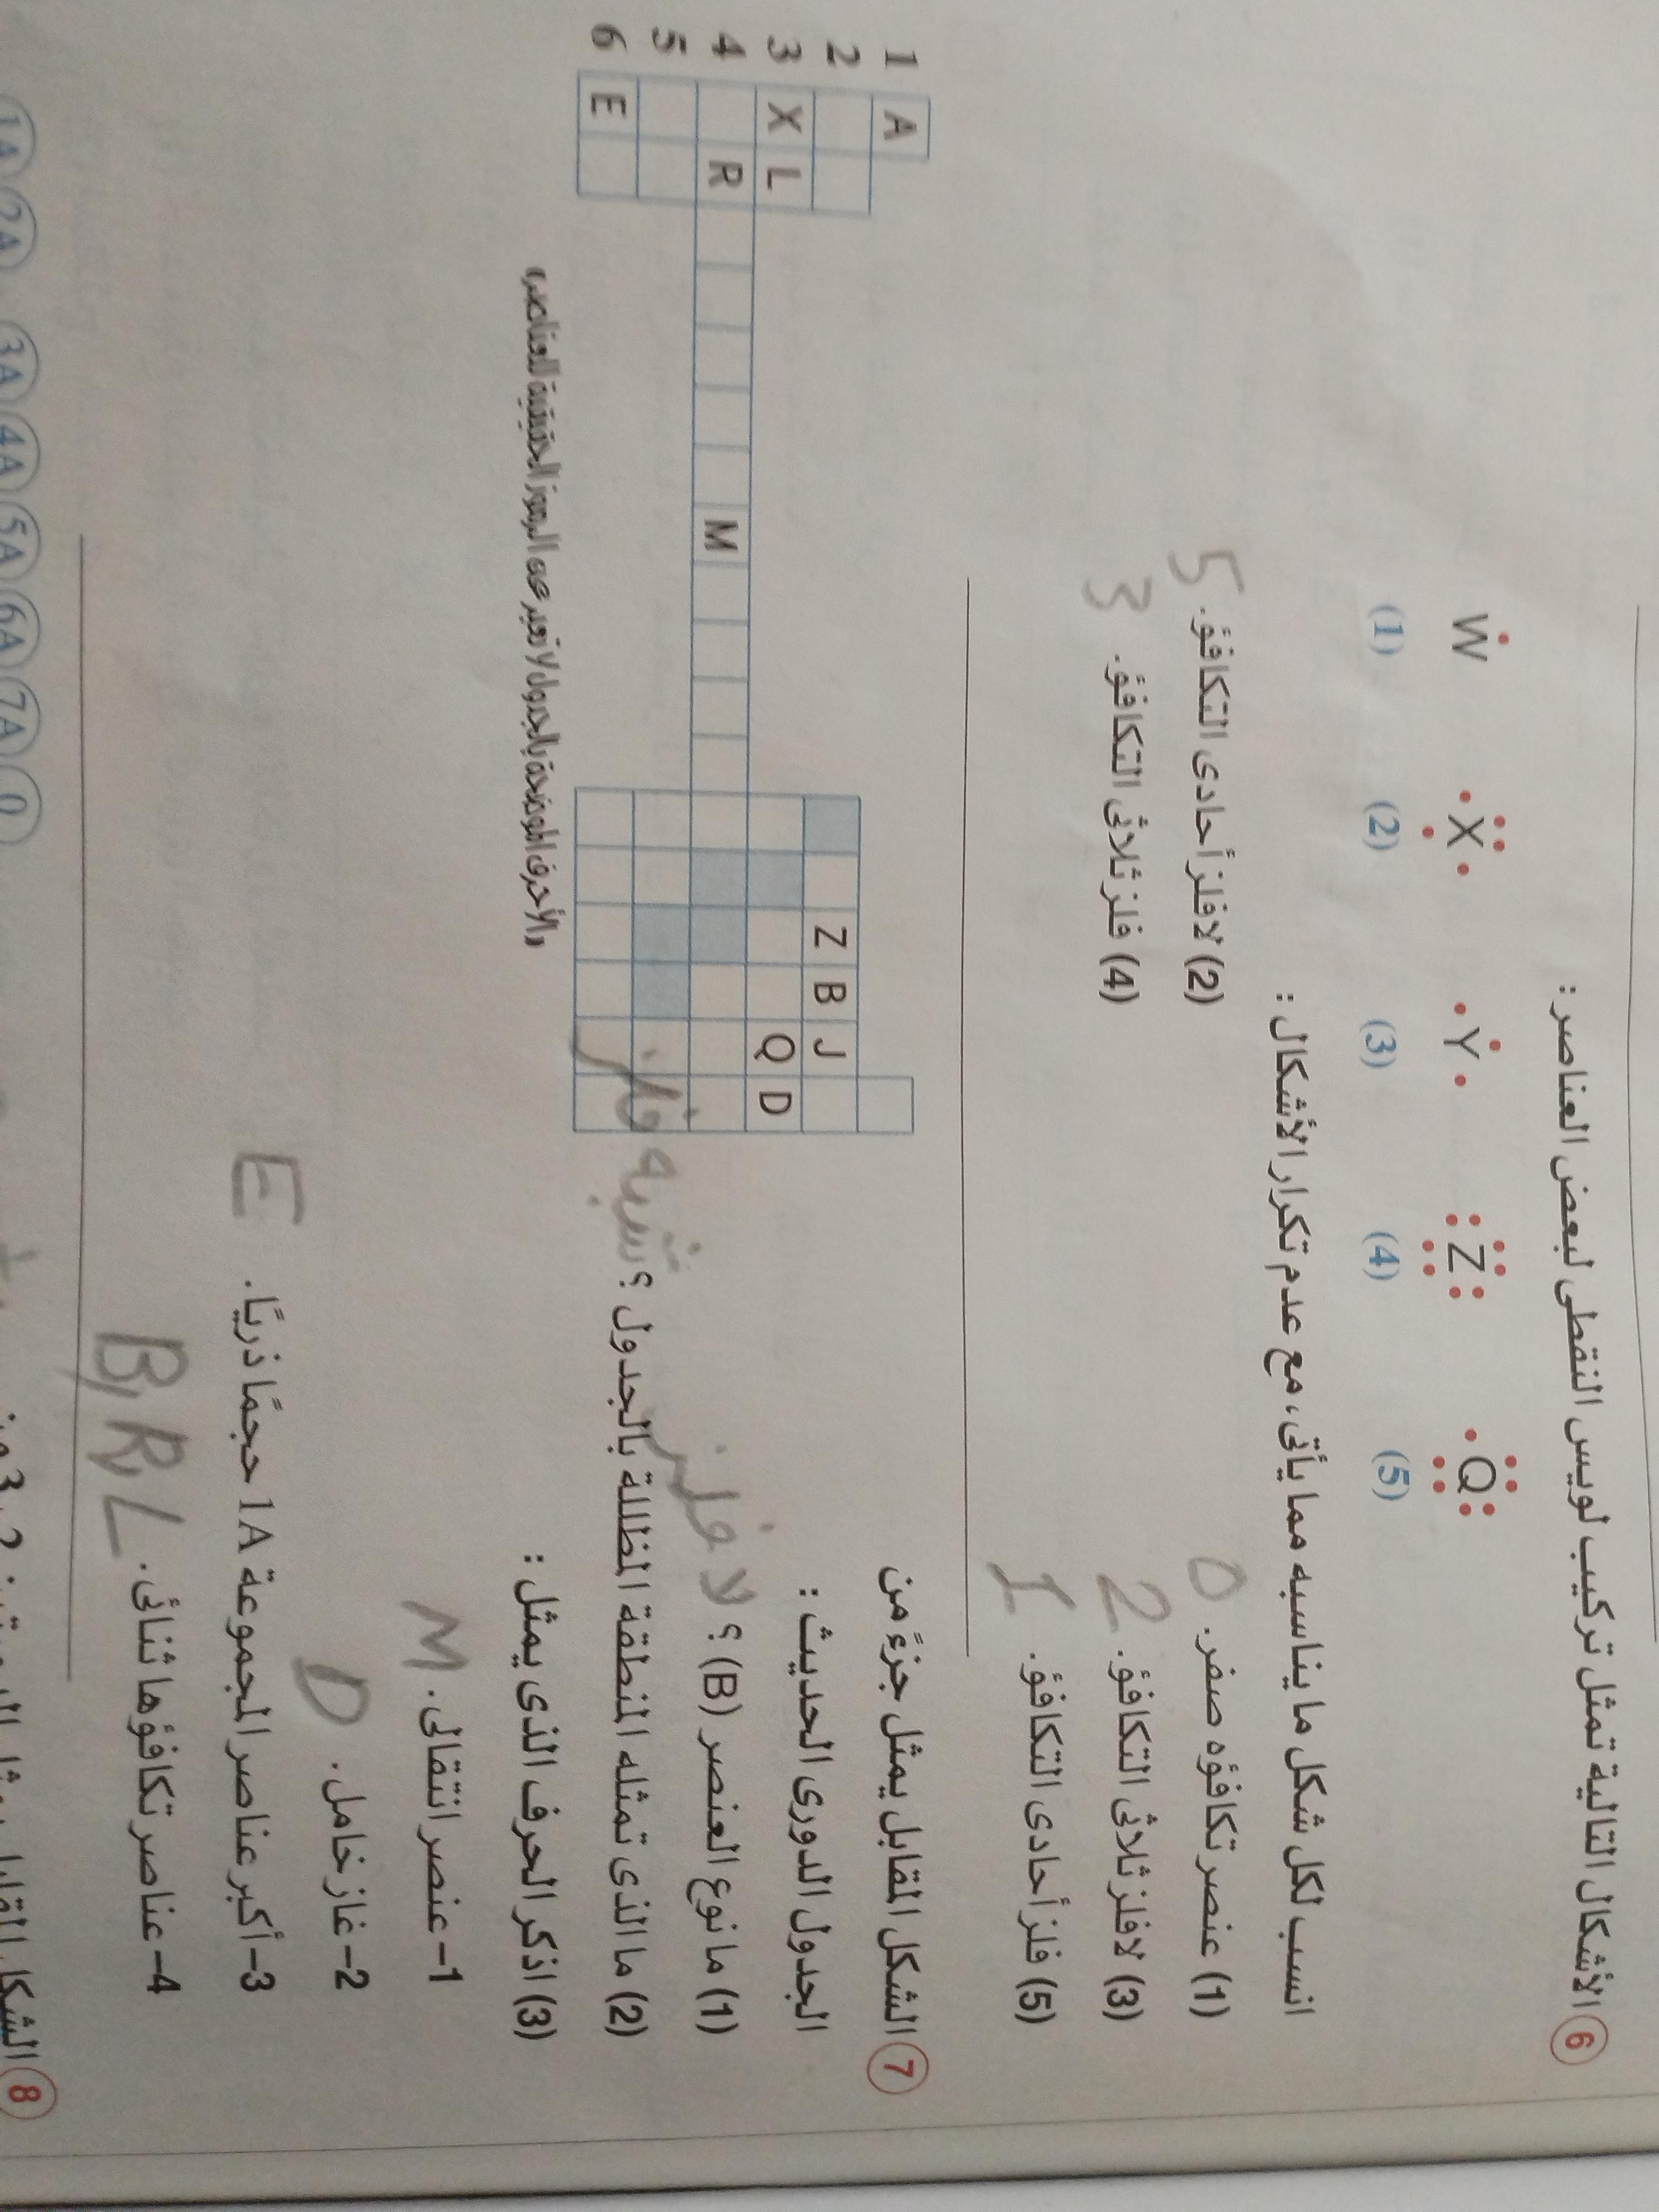 6 الأشكال التالية تمثل تركيب لويس النقطى لبعض العناصر :
W X Y Z Q
(1) (2) (3) (4) (5)
انسب لكل شكل ما يناسبه مما يأتى، مع عدم تكرار الأشكال :
(1) عنصر تكافؤه صفر. 0
(2) لافلز أحادى التكافؤ. 5
(3) لافلز ثلاثى التكافؤ. 2
(4) فلز ثلاثى التكافؤ. 3
(5) فلز أحادى التكافؤ. 1
7 الشكل المقابل يمثل جزءًا من
الجدول الدورى الحديث :
(1) ما نوع العنصر (B) ؟ لا فلز
(2) ما الذى تمثله المنطقة المظللة بالجدول ؟ شبه فلز
(3) اذكر الحرف الذى يمثل :
1– عنصر انتقالى. M
2– غاز خامل. D
3– أكبر عناصر المجموعة 1A حجمًا ذريًا. E
4– عناصر تكافؤها ثنائى. B, R, L
1 A
2 Z B J
3 X L Q D
4 R M
5
6 E
«الأحرف الموضحة بالجدول لا تعبر عن الرموز الحقيقية للعناصر»
8 الشكل المقابل
1A 2A 3A 4A 5A 6A 7A 0